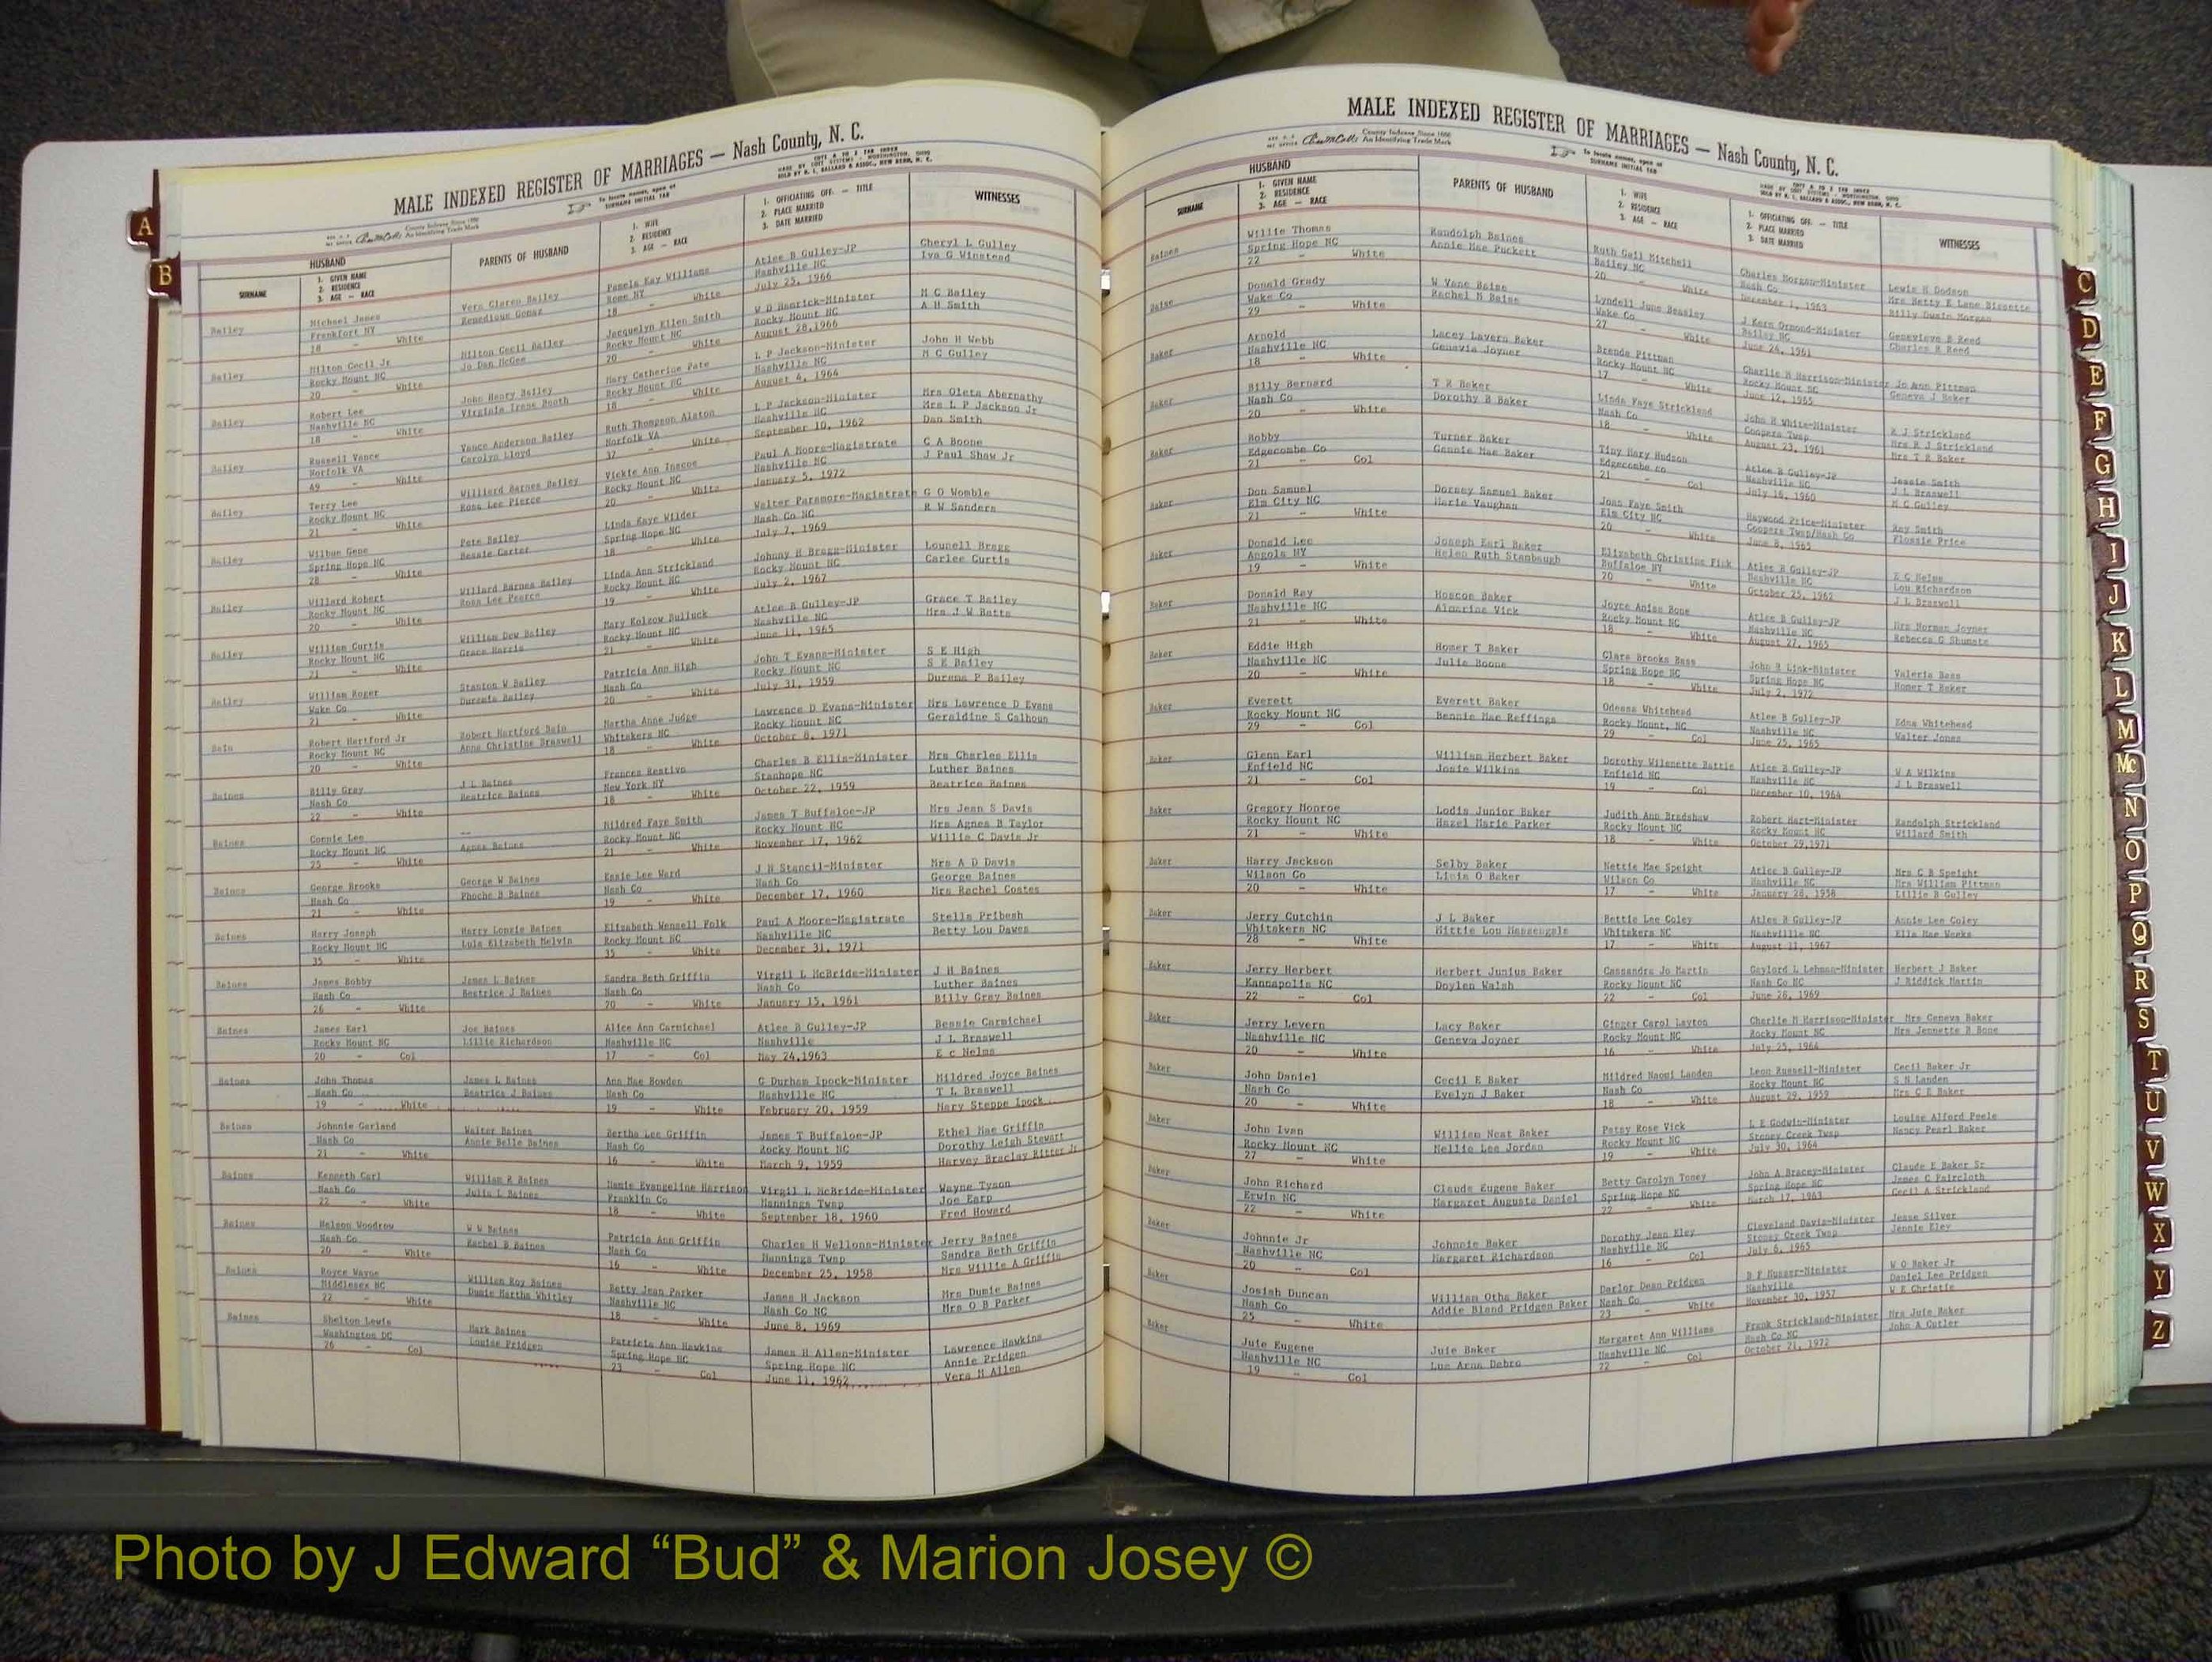 MALE INDEXED REGISTER OF MARRIAGES — Nash County, N. C.
County Indexes Since 1888
An Identifying Trade Mark
To locate names, open at
SURNAME INITIAL TAB
HUSBAND
PARENTS OF HUSBAND
1. WIFE
2. RESIDENCE
3. AGE — RACE
1. OFFICIATING OFF. — TITLE
2. PLACE MARRIED
3. DATE MARRIED
WITNESSES
SURNAME
1. GIVEN NAME
2. RESIDENCE
3. AGE — RACE
Bailey Michael James Vera Claren Bailey Pamela Kay Williams Atlee B Gulley-JP Cheryl L Gulley
Frankfort NY Rome NY Nashville NC Iva G Winstead
18 - White 18 - White July 25, 1966
Bailey Milton Cecil Jr Milton Cecil Bailey Jacquelyn Ellen Smith Minister M C Bailey
Rocky Mount NC Jo Dan McGee Rocky Mount NC Rocky Mount NC A H Smith
20 - White 20 - White August 28,1966
Bailey Robert Lee John Henry Bailey Mary Catherine Pate L P Jackson-Minister John H Webb
Nashville NC Virginia Irene Booth Rocky Mount NC Nashville NC M C Gulley
18 - White 18 - White August 4, 1964
Bailey Russell Vance Vance Anderson Bailey Ruth Thompson Alston L P Jackson-Minister Mrs Oleta Abernathy
Norfolk VA Carolyn Lloyd Norfolk VA Nashville NC Mrs L P Jackson Jr
49 - White 37 - White September 10, 1962 Dan Smith
Bailey Terry Lee Willard Barnes Bailey Vickie Ann Inscoe Paul A Moore-Magistrate C A Boone
Rocky Mount NC Rosa Lee Pierce Rocky Mount NC Nashville NC J Paul Shaw Jr
21 - White 20 - White January 5, 1972
Bailey Wilbun Gene Pete Bailey Linda Kaye Wilder Walter Paramore-Magistrate G O Womble
Spring Hope NC Bessie Carter Spring Hope NC Nash Co NC R W Sanders
28 - White 18 - White July 7, 1969
Bailey Willard Robert Willard Barnes Bailey Linda Ann Strickland Johnny H Bragg-Minister Lounell Bragg
Rocky Mount NC Rosa Lee Pearce Rocky Mount NC Rocky Mount NC Carlee Curtis
20 - White 19 - White July 2, 1967
Bailey William Curtis William Dew Bailey Mary Kolzow Bulluck Atlee B Gulley-JP Grace T Bailey
Rocky Mount NC Grace Harris Rocky Mount NC Nashville NC Mrs J W Batts
21 - White 21 - White June 11, 1965
Bailey William Roger Stanton W Bailey Patricia Ann High John T Evans-Minister S E High
Wake Co Durenia Bailey Nash Co Rocky Mount NC S E Bailey
21 - White 20 - White July 31, 1959 Durema P Bailey
Bain Robert Hartford Jr Robert Hartford Bain Martha Anne Judge Lawrence D Evans-Minister Mrs Lawrence D Evans
Rocky Mount NC Anna Christine Braswell Whitakers NC Rocky Mount NC Geraldine S Calhoun
20 - White 18 - White October 8, 1971
Baines Billy Gray J L Baines Frances Restivo Charles B Ellis-Minister Mrs Charles Ellis
Nash Co Beatrice Baines New York NY Stanhope NC Luther Baines
22 - White 18 - White October 22, 1959 Beatrice Baines
Baines Connie Lee -- Mildred Faye Smith James T Buffaloe-JP Mrs Jean S Davis
Rocky Mount NC Agnes Baines Rocky Mount NC Rocky Mount NC Mrs Agnes B Taylor
25 - White 21 - White November 17, 1962 Willie C Davis Jr
Baines George Brooks George W Baines Essie Lee Ward J H Stancil-Minister Mrs A D Davis
Nash Co Phoche B Baines Nash Co Nash Co George Baines
21 - White 19 - White December 17, 1960 Mrs Rachel Costes
Baines Harry Joseph Harry Lonzie Baines Elizabeth Wensell Folk Paul A Moore-Magistrate Stells Pribesh
Rocky Mount NC Lula Elizabeth Melvin Rocky Mount NC Nashville NC Betty Lou Dawes
35 - White 35 - White December 31, 1971
Baines James Bobby James L Baines Sandra Beth Griffin Virgil L McBride-Minister J H Baines
Nash Co Beatrice J Baines Nash Co Nash Co Luther Baines
26 - White 20 - White January 15, 1961 Billy Gray Baines
Baines James Earl Joe Baines Alice Ann Carmichael Atlee B Gulley-JP Bennie Carmichael
Rocky Mount NC Lillie Richardson Nashville NC Nashville J L Braswell
20 - Col 17 - Col May 24,1963 E c Nelms
Baines John Thomas James L Baines Ann Mae Bowden G Durham Ipock-Minister Mildred Joyce Baines
Nash Co Beatrice J Baines Nash Co Nashville NC T L Braswell
19 - White 19 - White February 20, 1959 Mary Steppe Ipock
Baines Johnnie Garland Walter Baines Bertha Lee Griffin James T Buffaloe-JP Ethel Mae Griffin
Nash Co Annie Belle Baines Nash Co Rocky Mount NC Dorothy Leigh Stewart
21 - White 16 - White March 9, 1959 Harvey Braclay Ritter Jr
Baines Kenneth Carl William R Baines Mamie Evangeline Harrison Virgil L McBride-Minister Wayne Tyson
Nash Co Julia L Baines Franklin Co Mannings Twsp Joe Earp
22 - White 18 - White September 18, 1960 Fred Howard
Baines Nelson Woodrow W W Baines Patricia Ann Griffin Charles H Wellons-Minister Jerry Baines
Nash Co Rachel B Baines Nash Co Mannings Twsp Sandra Beth Griffin
20 - White 16 - White December 25, 1958 Mrs Willie A Griffin
Baines Royce Wayne William Roy Baines Betty Jean Parker James H Jackson Mrs Dumie Baines
Middlesex NC Dumie Martha Whitley Nashville NC Nash Co NC Mrs O B Parker
22 - White 18 - White June 8, 1969
Baines Shelton Lewis Mark Baines Patricia Ann Hawkins James H Allen-Minister Lawrence Hawkins
Washington DC Louise Pridgen Spring Hope NC Spring Hope NC Annie Pridgen
26 - Col 23 - Col June 11, 1962 Vera M Allen
MALE INDEXED REGISTER OF MARRIAGES — Nash County, N. C.
County Indexes Since 1888
An Identifying Trade Mark
To locate names, open at
SURNAME INITIAL TAB
HUSBAND
SURNAME
1. GIVEN NAME
2. RESIDENCE
3. AGE — RACE
PARENTS OF HUSBAND
1. WIFE
2. RESIDENCE
3. AGE — RACE
1. OFFICIATING OFF. — TITLE
2. PLACE MARRIED
3. DATE MARRIED
WITNESSES
Baines Willie Thomas Randolph Baines Ruth Gail Mitchell Charles Morgan-Minister Lewis H Dodson
Spring Hope NC Annie Mae Puckett Bailey NC Nash Co Mrs Betty E Lane Bissette
22 - White 20 - White December 1, 1963 Billy Dwain Morgan
Baise Donald Grady W Vane Baise Lyndell June Beasley J Kern Ormond-Minister Genevieve B Reed
Wake Co Rachel M Baise Wake Co Bailey NC Charles R Reed
29 - White 27 - White June 24, 1961
Baker Arnold Lacey Lavern Baker Brenda Pittman Charlie M Harrison-Minister Jo Ann Pittman
Nashville NC Genevia Joyner Rocky Mount NC Rocky Mount NC Geneva J Baker
18 - White 17 - White June 12, 1965
Baker Billy Bernard T R Baker Linda Faye Strickland John H White-Minister R J Strickland
Nash Co Dorothy B Baker Nash Co Coopers Twsp Mrs R J Strickland
20 - White 18 - White August 23, 1961 Mrs T R Baker
Baker Bobby Turner Baker Tiny Mary Hudson Atlee B Gulley-JP Jessie Smith
Edgecombe Co Gennie Mae Baker Edgecombe co Nashville NC J L Braswell
21 - Col 21 - Col July 16, 1960 M C Gulley
Baker Don Samuel Dorsey Samuel Baker Joan Faye Smith Haywood Price-Minister Roy Smith
Elm City NC Marie Vaughan Elm City NC Coopers Twsp/Nash Co Flossie Price
21 - White 20 - White June 8, 1965
Baker Donald Lee Joseph Earl Baker Elizabeth Christine Fink Atlee B Gulley-JP E C Nelms
Angola NY Helen Ruth Stanbaugh Buffaloe NY Nashville NC Lou Richardson
19 - White 20 - White October 25, 1962 J L Braswell
Baker Donald Ray Hoscoe Baker Joyce Anise Bone Atlee B Gulley-JP Mrs Norman Joyner
Nashville NC Almarine Vick Rocky Mount NC Nashville NC Rebecca G Shumate
21 - White 18 - White August 27, 1965
Baker Eddie High Homer T Baker Clara Brooks Bass John R Link-Minister Valeria Bass
Nashville NC Julia Boone Spring Hope NC Spring Hope NC Homer T Baker
20 - White 18 - White July 2, 1972
Baker Everett Everett Baker Odessa Whitehead Atlee B Gulley-JP Edna Whitehead
Rocky Mount NC Bennie Mae Reffings Rocky Mount, NC Nashville NC Walter Jones
29 - Col 29 - Col June 25, 1965
Baker Glenn Earl William Herbert Baker Dorothy Wilenette Battle Atlee B Gulley-JP W A Wilkins
Enfield NC Josie Wilkins Enfield NC Nashville NC J L Braswell
21 - Col 19 - Col December 10, 1964
Baker Gregory Monroe Lodis Junior Baker Judith Ann Bradshaw Robert Hart-Minister Randolph Strickland
Rocky Mount NC Hazel Marie Parker Rocky Mount NC Rocky Mount NC Willard Smith
21 - White 18 - White October 29,1971
Baker Harry Jackson Selby Baker Nettie Mae Speight Atlee B Gulley-JP Mrs C B Speight
Wilson Co Linis O Baker Wilson Co Nashville NC Mrs William Pittman
20 - White 17 - White January 28, 1958 Lillie B Gulley
Baker Jerry Cutchin J L Baker Bettie Lee Coley Atlee B Gulley-JP Annie Lee Coley
Whitakers NC Mittie Lou Massengale Whitakers NC Nashville NC Ella Mae Weeks
28 - White 17 - White August 11, 1967
Baker Jerry Herbert Herbert Junius Baker Cassandra Jo Martin Gaylord L Lehman-Minister Herbert J Baker
Kannapolis NC Doylen Walsh Rocky Mount NC Nash Co NC J Riddick Martin
22 - Col 22 - Col June 28, 1969
Baker Jerry Levern Lacy Baker Ginger Carol Layton Charlie M Harrison-Minister Mrs Geneva Baker
Nashville NC Geneva Joyner Rocky Mount NC Rocky Mount NC Mrs Jennette B Bone
20 - White 16 - White July 25, 1964
Baker John Daniel Cecil E Baker Mildred Naomi Landen Leon Russell-Minister Cecil Baker Jr
Nash Co Evelyn J Baker Nash Co Rocky Mount NC S N Landen
20 - White 18 - White August 29, 1959 Mrs C E Baker
Baker John Ivan William Neat Baker Patsy Rose Vick L E Godwin-Minister Louise Alford Peele
Rocky Mount NC Nellie Lee Jordan Rocky Mount NC Stoney Creek Twsp Nancy Pearl Baker
27 - White 19 - White July 30, 1964
Baker John Richard Claude Eugene Baker Betty Carolyn Toney John A Bracey-Minister Claude E Baker Sr
Erwin NC Margaret Augusta Daniel Spring Hope NC Spring Hope NC James C Faircloth
22 - White 22 - White March 17, 1963 Cecil A Strickland
Baker Johnnie Jr Johnnie Baker Dorothy Jean Eley Cleveland Davis-Minister Jesse Silver
Nashville NC Margaret Richardson Nashville NC Stoney Creek Twsp Jennie Eley
20 - Col 16 - Col July 6, 1965
Baker Josiah Duncan William Otha Baker Darlor Dean Pridgen Minister W O Baker Jr
Nash Co Addie Bland Pridgen Baker Nash Co Nashville Daniel Lee Pridgen
25 - White 23 - White November 30, 1957 W E Christie
Baker Juie Eugene Juie Baker Margaret Ann Williams Frank Strickland-Minister Mrs Juie Baker
Nashville NC Lue Arna Debro Nashville NC Nash Co NC John A Cutler
19 - Col 22 - Col October 21, 1972
A
B
C
D
E
F
G
H
I
J
K
L
M
Mc
N
O
P
Q
R
S
T
U
V
W
X
Y
Z
Photo by J Edward “Bud” & Marion Josey ©